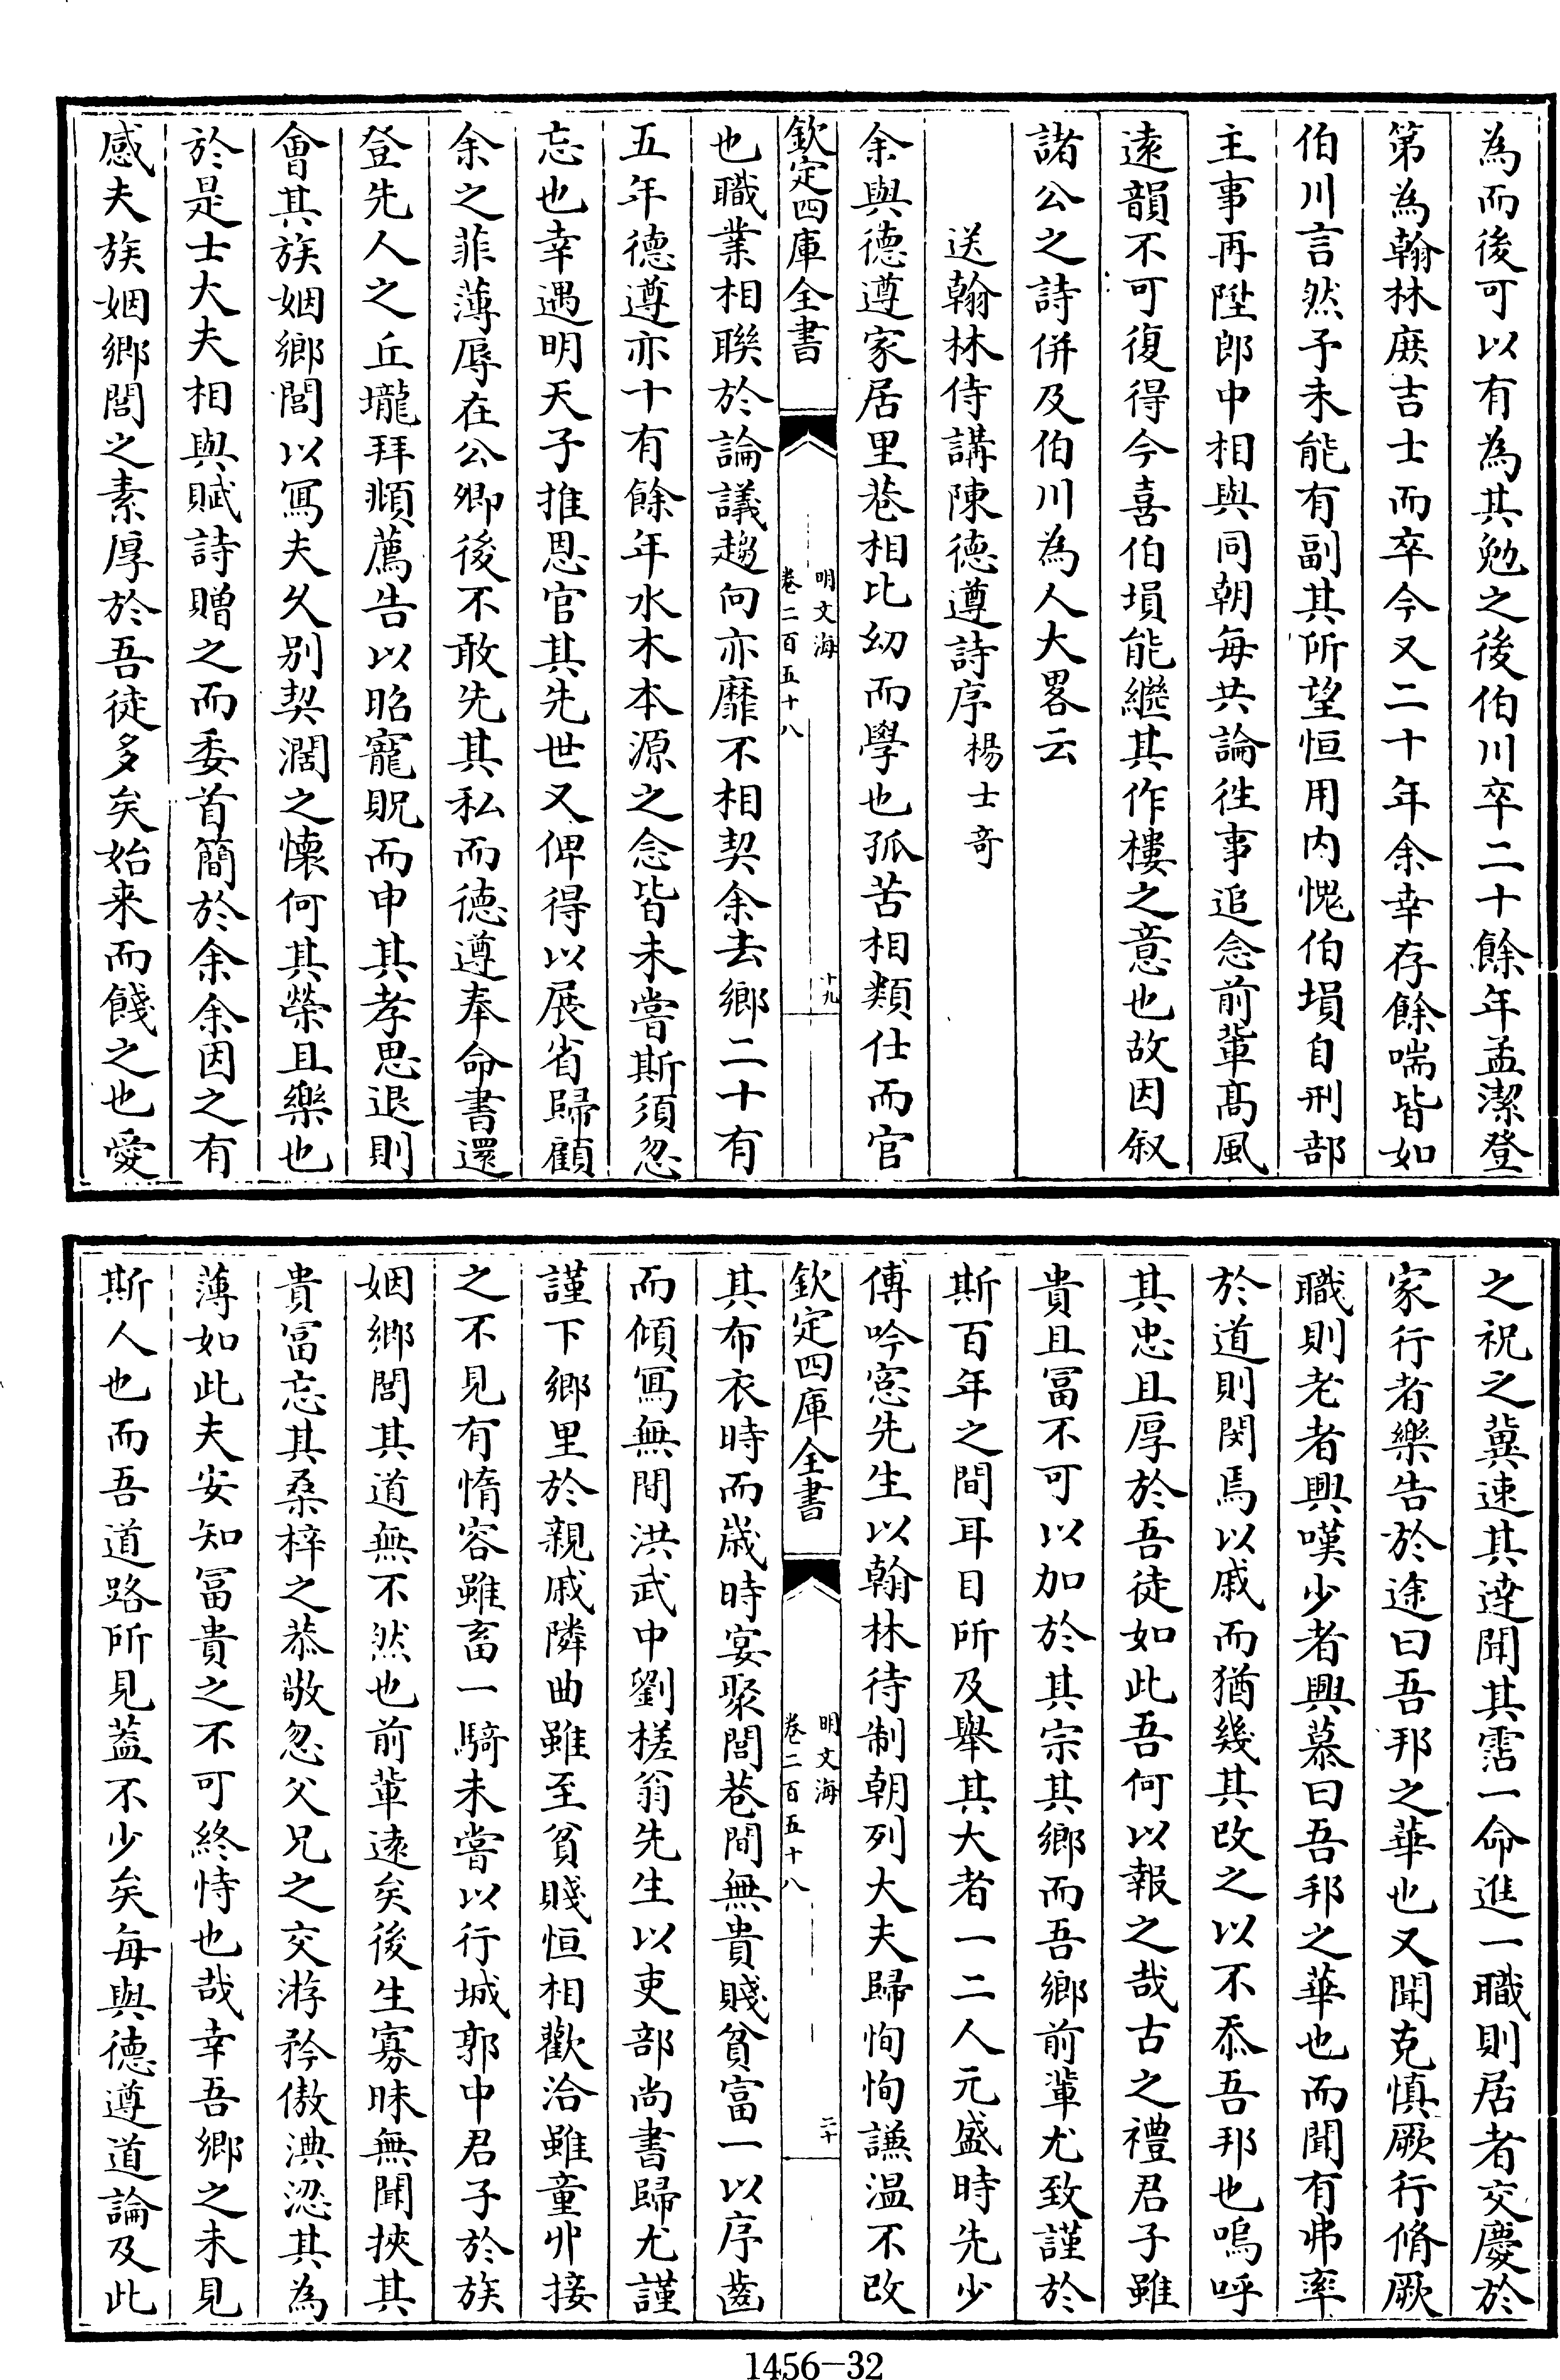 為而後可以有為其勉之後伯川卒二十餘年孟潔登
第為翰林庶吉士而卒今又二十年余幸存餘喘皆如
伯川言然予未能有副其所望恒用内愧伯塤自刑部
主事再陞郎中相與同朝每共論徃事追念前軰髙風
遠韻不可復得今喜伯塤能繼其作樓之意也故因叙
諸公之詩併及伯川為人大畧云
送翰林侍講陳德遵詩序楊士竒
余與德遵家居里巷相比幼而學也孤苦相類仕而官
欽定四庫全書
明文海
卷二百五十八
十九
也職業相聯於論議趨向亦靡不相契余去鄉二十有
五年德遵亦十有餘年水木本源之念皆未嘗斯須忽
忘也幸遇明天子推恩官其先世又俾得以展省歸顧
余之菲薄辱在公卿後不敢先其私而德遵奉命書還
登先人之丘壠拜頫薦告以昭寵貺而申其孝思退則
會其族姻鄉閭以冩夫久别契濶之懷何其榮且樂也
於是士大夫相與賦詩贈之而委首簡於余余因之有
感夫族姻鄉閭之素厚於吾徒多矣始来而餞之也愛
之祝之冀速其逹聞其霑一命進一職則居者交慶於
家行者樂告於途曰吾邦之華也又聞克慎厥行脩厥
職則老者興嘆少者興慕曰吾邦之華也而聞有弗率
於道則閔焉以戚而猶幾其改之以不忝吾邦也嗚呼
其忠且厚於吾徒如此吾何以報之哉古之禮君子雖
貴且冨不可以加於其宗其鄉而吾鄉前軰尤致謹於
斯百年之間耳目所及舉其大者一二人元盛時先少
傅吟窓先生以翰林待制朝列大夫歸恂恂謙温不改
欽定四庫全書
明文海
卷二百五十八
二十
其布衣時而歲時宴聚閭巷間無貴賤貧富一以序齒
而傾冩無間洪武中劉槎翁先生以吏部尚書歸尤謹
謹下鄉里於親戚隣曲雖至貧賤恒相歡洽雖童丱接
之不見有惰容雖畜一騎未嘗以行城郭中君子於族
姻鄉閭其道無不然也前軰遠矣後生寡昧無聞挾其
貴冨忘其桑梓之恭敬忽父兄之交游矜傲淟涊其為
薄如此夫安知冨貴之不可終恃也哉幸吾鄉之未見
斯人也而吾道路所見葢不少矣每與德遵道論及此
1456-32